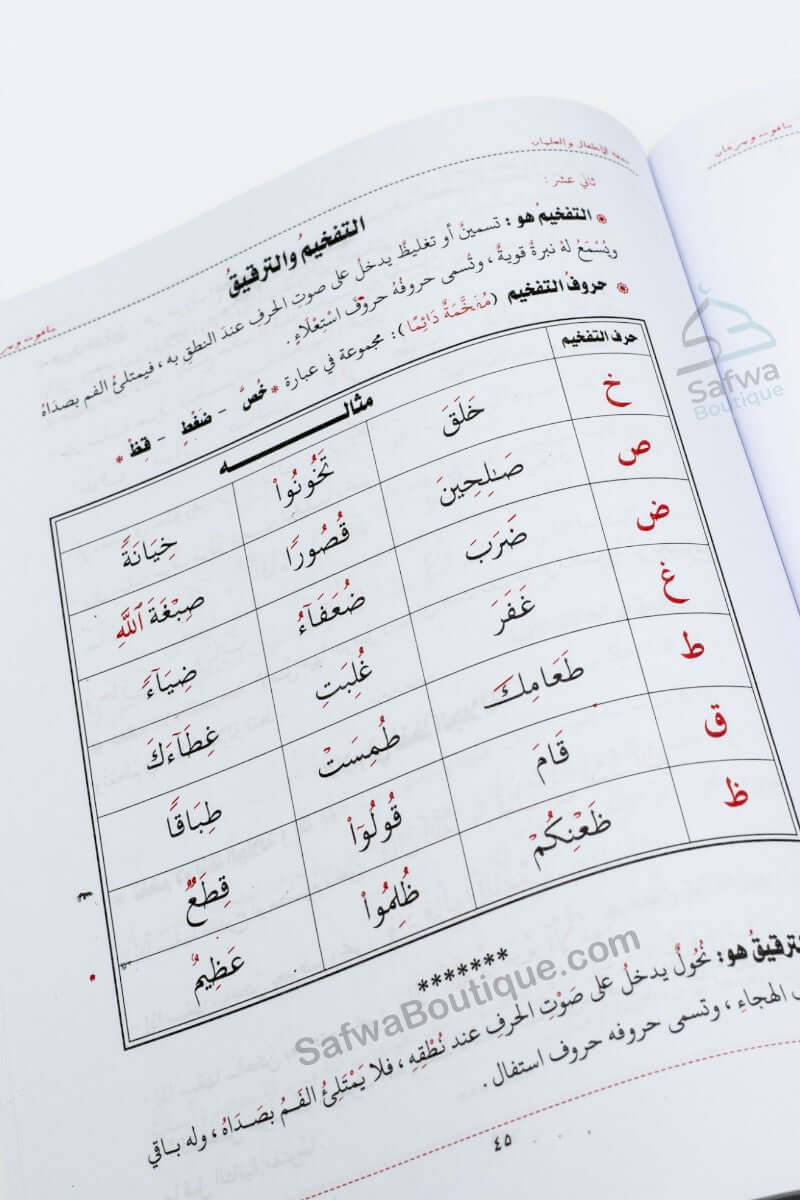 تحفة الأطفال والغلمان
ثاني عشر :
التفخيمُ والترقيقُ
* التفخيمُ هو : تسمينٌ أو تغليظٌ يدخلُ على صوتِ الحرفِ عندَ النطقِ به ، فيمتلئُ الفم بصداهُ
ويُسْمَعُ لهُ نبرةٌ قويةٌ ، وتُسمى حروفُهُ حروفَ اسْتِعْلَاءٍ .
* حروفُ التفخيم (مُفَخَّمَةٌ دَائِمًا) : مجموعة في عبارة * خُصَّ - ضَغْطٍ - قِظْ *
حرف التفخيم مثالـــه
خ خَلَقَ تَخُونُواْ خِيَانَةً
ص صَـٰلِحِينَ قُصُورًا صِبْغَةَ ٱللَّهِ
ض ضَرَبَ ضُعَفَآءُ ضِيَآءً
غ غَفَرَ غُلِبَتِ غِطَآءَكَ
ط طَعَامِكَ طُمِسَتْ طِبَاقًا
ق قَامَ قُولُوٓاْ قِطَعٌ
ظ ظَعْنِكُمْ ظُلِمُواْ عَظِيمٌ
*******
الترقيقُ هو: نُحُولٌ يدخلُ على صَوْتِ الحرفِ عند نُطْقِهِ ، فلا يَمْتَلِئُ الفَمُ بصَدَاهُ ، وله باقي
الهجاءِ ، وتسمى حروفه حروف استفال .
٤٥
Safwa
Boutique
SafwaBoutique.com